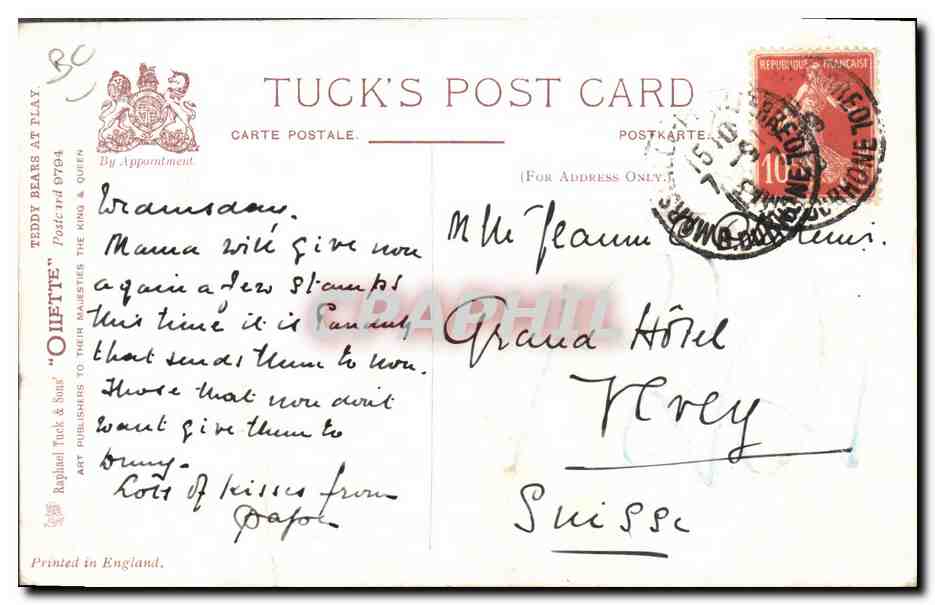 BC
TEDDY BEARS AT PLAY.
Postcard 9794
"OILETTE"
Raphael Tuck & Sons'
ART PUBLISHERS TO THEIR MAJESTIES THE KING & QUEEN
By Appointment.
TUCK'S POST CARD
CARTE POSTALE.
POSTKARTE.
(FOR ADDRESS ONLY.)
REPUBLIQUE FRANÇAISE
10
Mama will give you
again a few stamps
this time it is
that sends them to you.
Those that you don't
want give them to
Lots of kisses from
papa
Mlle Jeanne
Grand Hôtel
Vevey
Suisse
Printed in England.
CPAPHIL